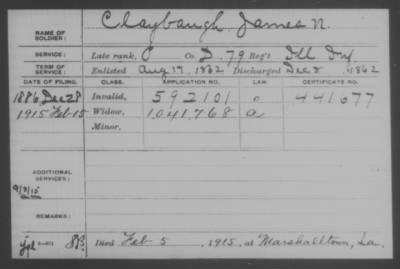 NAME OF SOLDIER: Claybaugh, James N.
SERVICE: Late rank, P Co. D, 79 Reg't Ill Inf
TERM OF SERVICE: Enlisted Aug 19, 1862 Discharged Dec 8, 1862
DATE OF FILING. CLASS. APPLICATION NO. LAW. CERTIFICATE NO.
1886 Dec 28 Invalid, 592101 441077
1915 Feb 15 Widow, 1041768 a
Minor,
ADDITIONAL SERVICES:
9/3/15
REMARKS:
Died Feb 5, 1915, at Marshalltown, Ia.